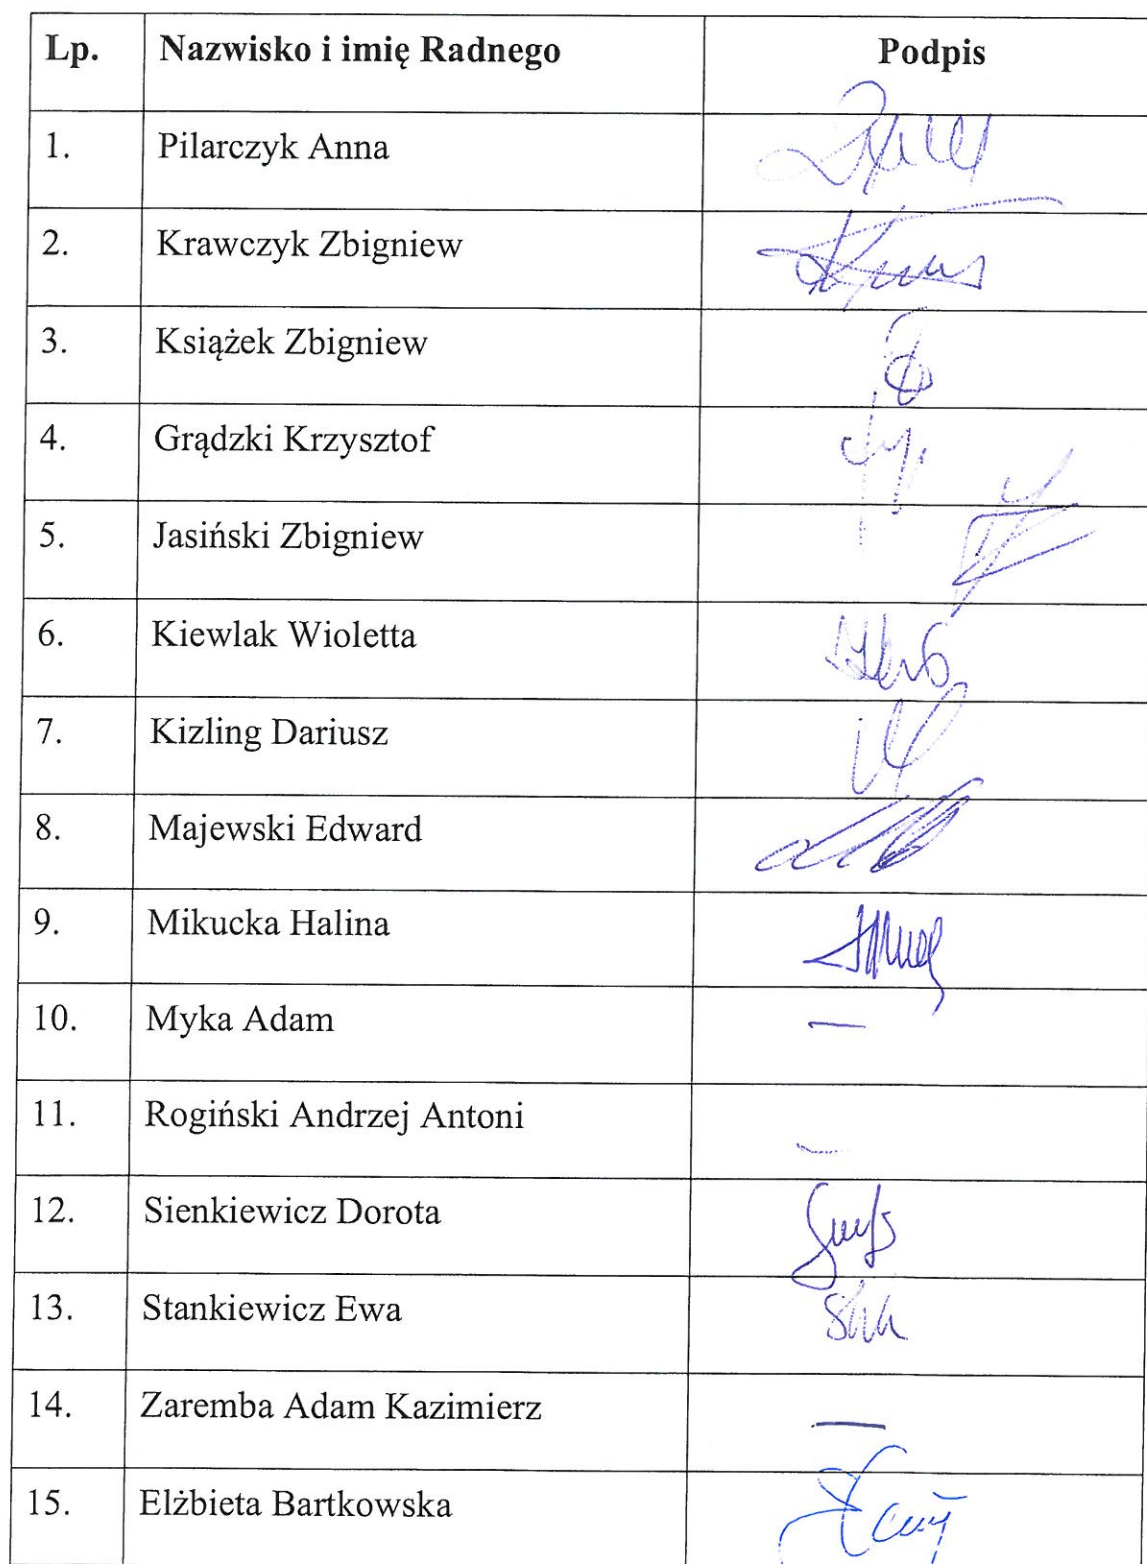 Lp. Nazwisko i imię Radnego Podpis
1. Pilarczyk Anna
2. Krawczyk Zbigniew
3. Książek Zbigniew
4. Grądzki Krzysztof
5. Jasiński Zbigniew
6. Kiewlak Wioletta
7. Kizling Dariusz
8. Majewski Edward
9. Mikucka Halina
10. Myka Adam —
11. Rogiński Andrzej Antoni —
12. Sienkiewicz Dorota
13. Stankiewicz Ewa
14. Zaremba Adam Kazimierz —
15. Elżbieta Bartkowska